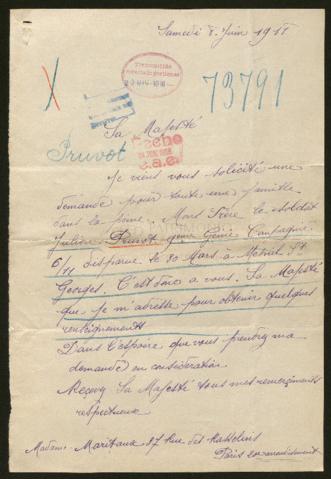 Samedi 8 Juin 1918
73791
Sa Majesté
Pruvot
Je viens vous solicité une
demande pour toute une famille
dans la peine. Mons frère le soldat
Julien Pruvot 9eme Génie Compagnie
6/11 disparue le 30 Mars à Mesnil St
Georges. C'est donc a vous Sa Majesté
que je m'adresse pour obtenir quelques
renseignements
Dans l'espoire que vous prendrez ma
demande en considération
Recevez Sa Majesté tous mes remerciments
respectueux
Madame Maritaux 27 rue des
Paris 20 arrondissement